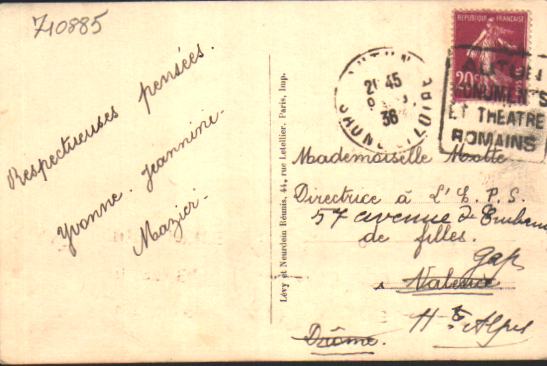 710885
Respectueuses pensées.
Yvonne. Jeannine.
Mazier.
Lévy et Neurdein Réunis, 44, rue Letellier. Paris, Imp.
AUTUN
21 45
36
REPUBLIQUE FRANÇAISE
20
AUTUN
MONUMENTS
ET THEATRE
ROMAINS
Mademoiselle Motte
Directrice à L'E. P. S.
57 avenue d'
de filles.
Gap
à Valence.
Drôme.
Htes Alpes